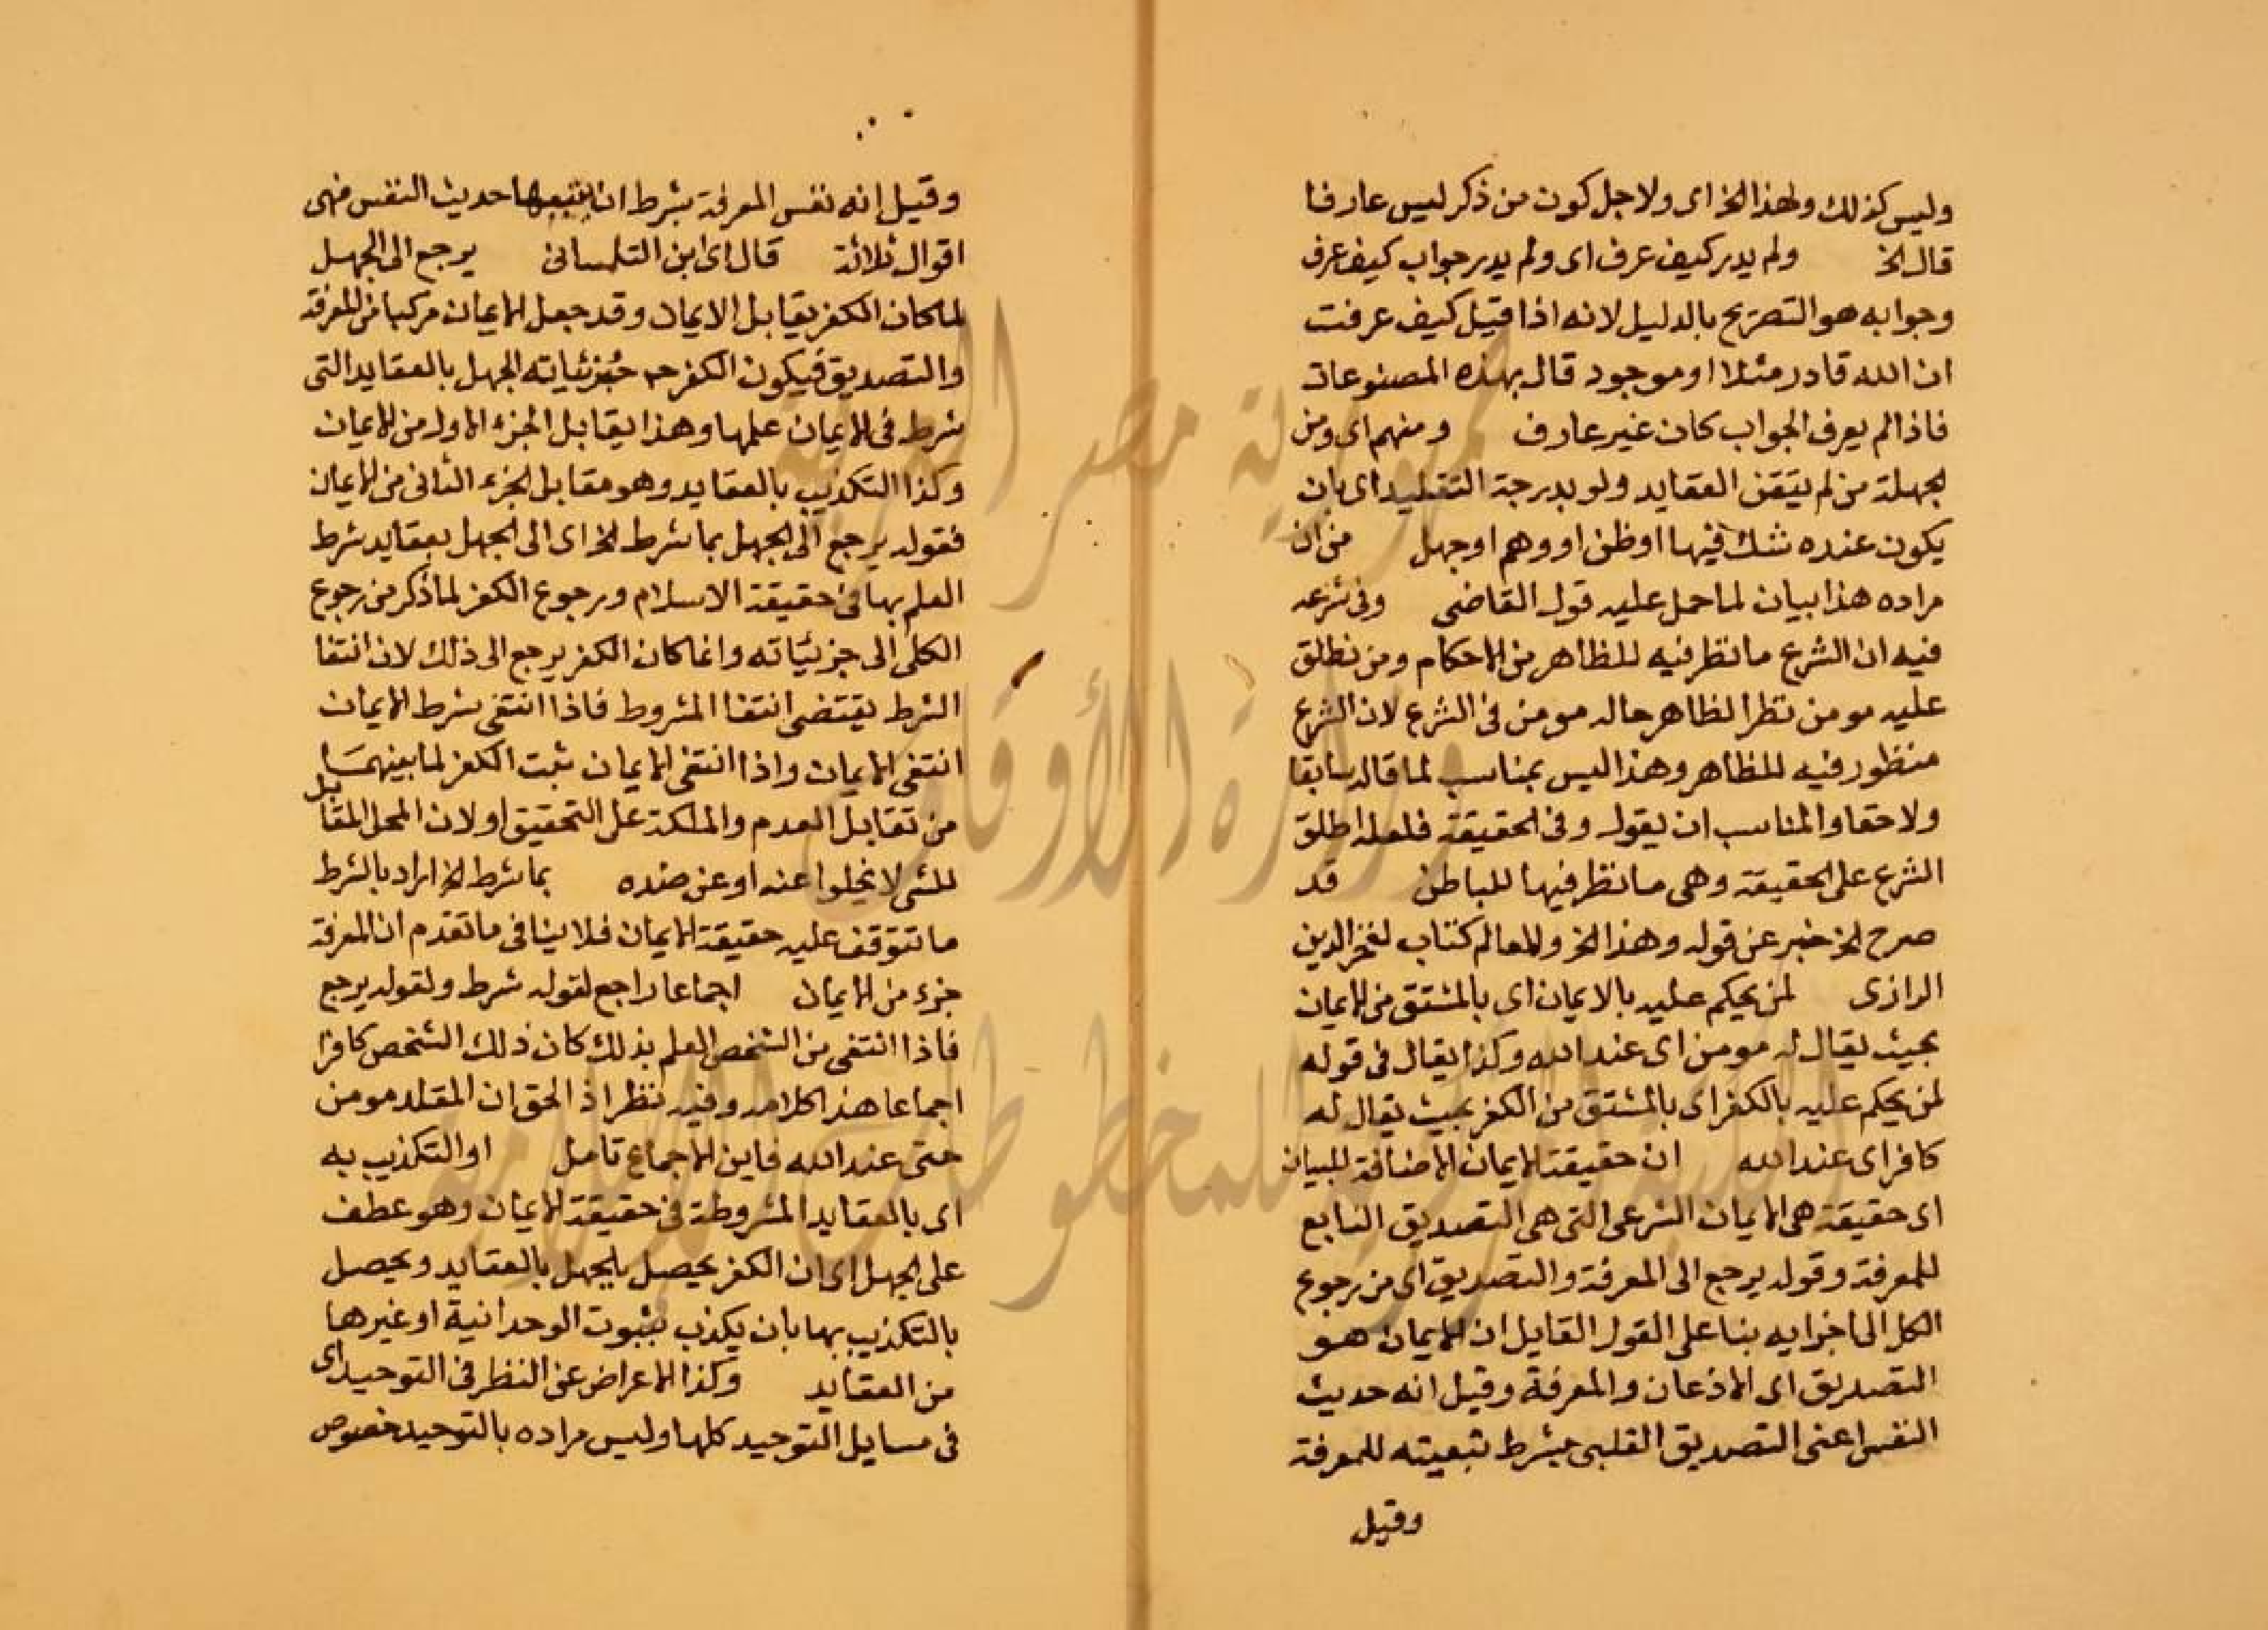 وليس كذلك ولهذا الخ اى ولاجل كون من ذكر ليس عارفا
قال الخ ولم يدر كيف عرف اى ولم يدر جواب كيف عرف
وجوابه هو التصريح بالدليل لانه اذا قيل كيف عرفت
ان الله قادر مثلا او موجود قال بهذه المصنوعات
فاذا لم يعرف الجواب كان غير عارف ومنهم اى ومن
الجهلة من لم يتقن العقايد ولو بدرجة التقليد اى بان
يكون عنده شك فيها او ظن او وهم او جهل من ان
مراده هذا بيان لما حمل عليه قول القاضى وفى شرعه
فيه ان الشرع ما نظر فيه للظاهر من الاحكام ومن نطلق
عليه مومن نظرا لظاهر حاله مومن فى الشرع لان الشرع
منظور فيه للظاهر وهذا ليس بمناسب لما قاله سابقا
ولاحقا والمناسب ان يقول وفى الحقيقة فلعله اطلق
الشرع على الحقيقة وهى ما نظر فيها للباطن قد
صرح الخ خبر عن قوله وهذا الخ والمعالم كتاب لفخر الدين
الرازى لمن يحكم عليه بالايمان اى بالمشتق من الايمان
بحيث يقال له مومن اى عند الله وكذا يقال فى قوله
لمن يحكم عليه بالكفر اى بالمشتق من الكفر بحيث يقال له
كافر اى عند الله ان حقيقة الايمان الاضافة للبيان
اى حقيقة هى الايمان الشرعى التى هى التصديق التابع
للمعرفة وقوله يرجع الى المعرفة والتصديق اى من رجوع
الكل الى اجزايه بنا على القول القايل ان الايمان هو
التصديق اى الاذعان والمعرفة وقيل انه حديث
النفس اعنى التصديق القلبى بشرط تبعيته للمعرفة
وقيل
وقيل انه نفس المعرفة بشرط ان يتبعها حديث النفس فهى
اقوال ثلاثة قال اى ابن التلمسانى يرجع الى الجهل
لما كان الكفر يقابل الايمان وقد جعل الايمان مركبا من المعرفة
والتصديق فيكون الكفر ح جزئياته الجهل بالعقايد التى
شرط فى الايمان علمها وهذا يقابل الجزء الاول من الايمان
وكذا التكذيب بالعقايد وهو مقابل الجزء الثانى من الايمان
فقوله يرجع الى الجهل بما شرط الخ اى الى الجهل بعقايد شرط
العلم بها فى حقيقة الاسلام ورجوع الكفر لما ذكر من رجوع
الكلى الى جزئياته وانما كان الكفر يرجع الى ذلك لان انتفا
الشرط يقتضى انتفا المشروط فاذا انتفى شرط الايمان
انتفى الايمان واذا انتفى الايمان ثبت الكفر لما بينهما
من تقابل العدم والملكة على التحقيق او لان المحل المقابل
للشى لا يخلوا عنه او عن ضده بما شرط الخ اراد بالشرط
ما تتوقف عليه حقيقة الايمان فلا ينافى ما تقدم ان المعرفة
جزء من الايمان اجماعا راجع لقوله شرط ولقوله يرجع
فاذا انتفى من الشخص العلم بذلك كان ذلك الشخص كافرا
اجماعا هذا كلامه وفيه نظر اذ الحق ان المقلد مومن
حتى عند الله فاين الاجماع تامل او التكذيب به
اى بالعقايد المشروطة فى حقيقة الايمان وهو عطف
على الجهل اى ان الكفر يحصل بالجهل بالعقايد ويحصل
بالتكذيب بها بان يكذب بثبوت الوحدانية او غيرها
من العقايد وكذا الاعراض عن النظر فى التوحيد اى
فى مسايل التوحيد كلها وليس مراده بالتوحيد خصوص